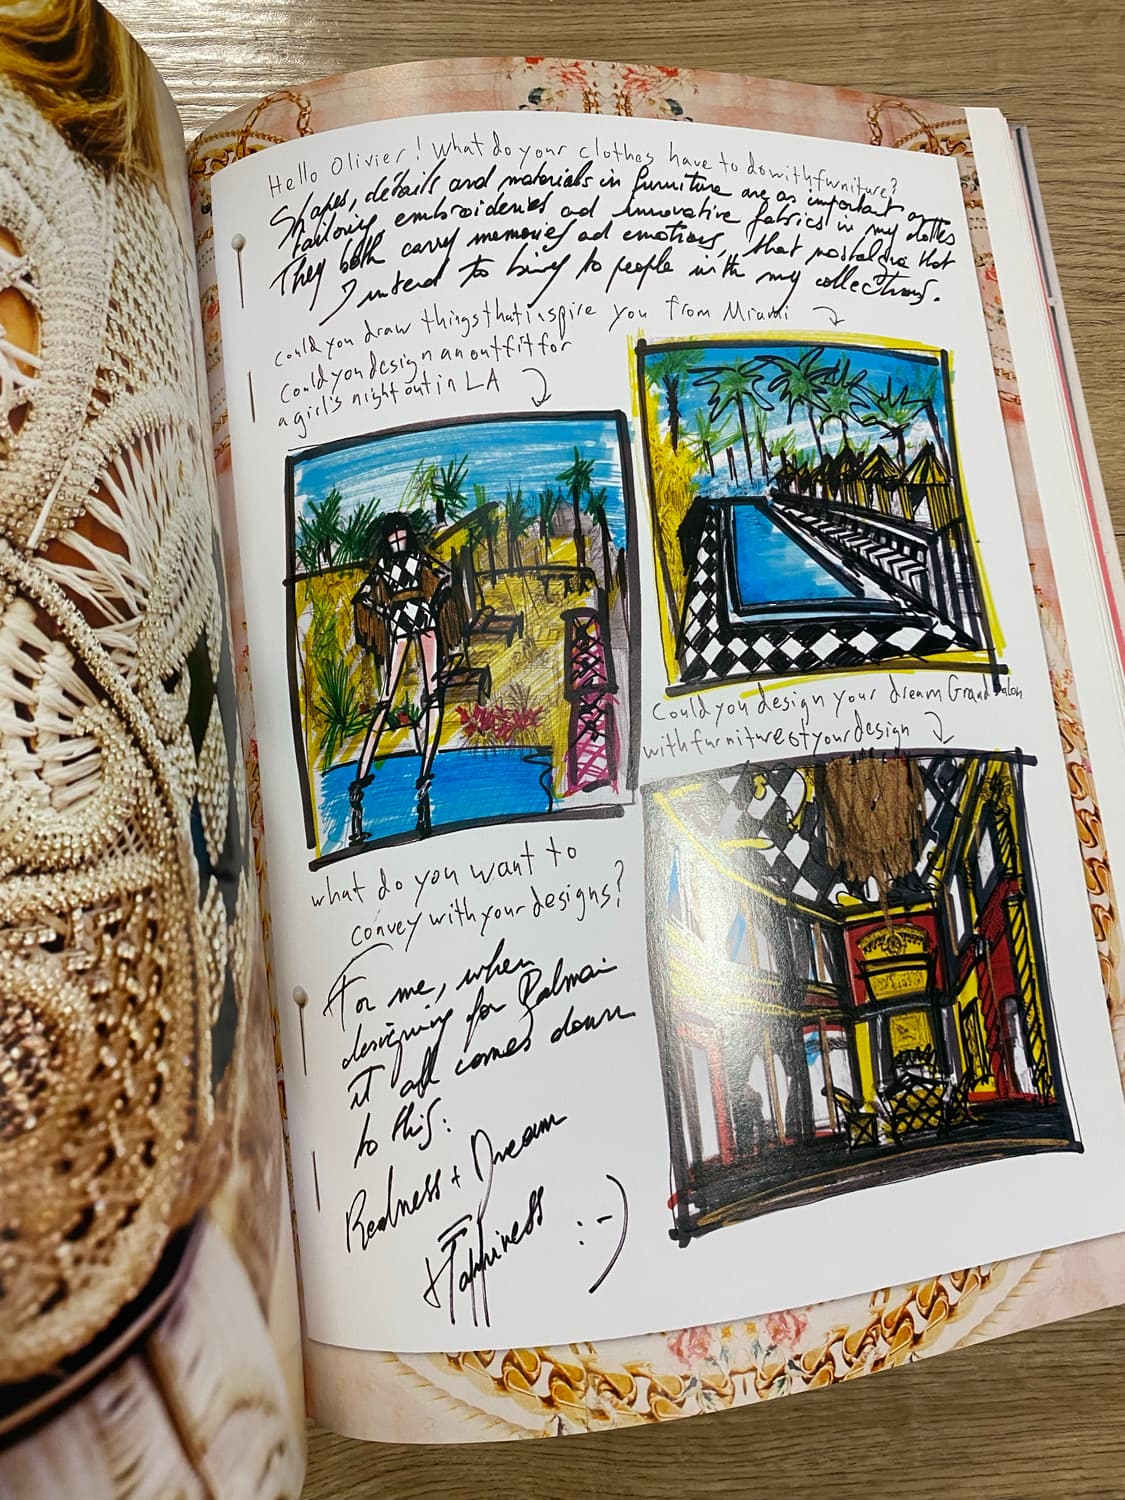 Hello Olivier! What do your clothes have to do with furniture?
Shapes, détails and materials in furniture are as important as
tailoring, embroideries and innovative fabrics in my clothes
They both carry memories ad emotions, that nostalgia that
I intend to bring to people with my collections.
could you draw things that inspire you from Miami
Could you design an outfit for
a girl's night out in LA
Could you design your dream Grand Salon
with furniture of your design
what do you want to
convey with your designs?
For me, when
designing for Balmain
it all comes down
to this:
Realness + Dream
= Happiness :-)